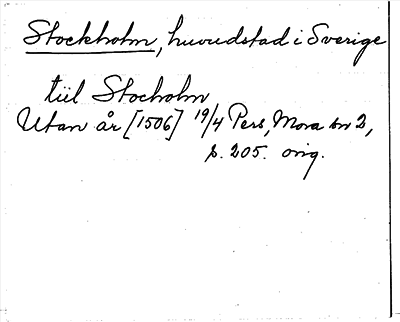 Stockholm, huvudstad i Sverige
tiil Stocholm
Utan år [1506] 19/4 Pers, Mora sn 2,
s. 205. orig.